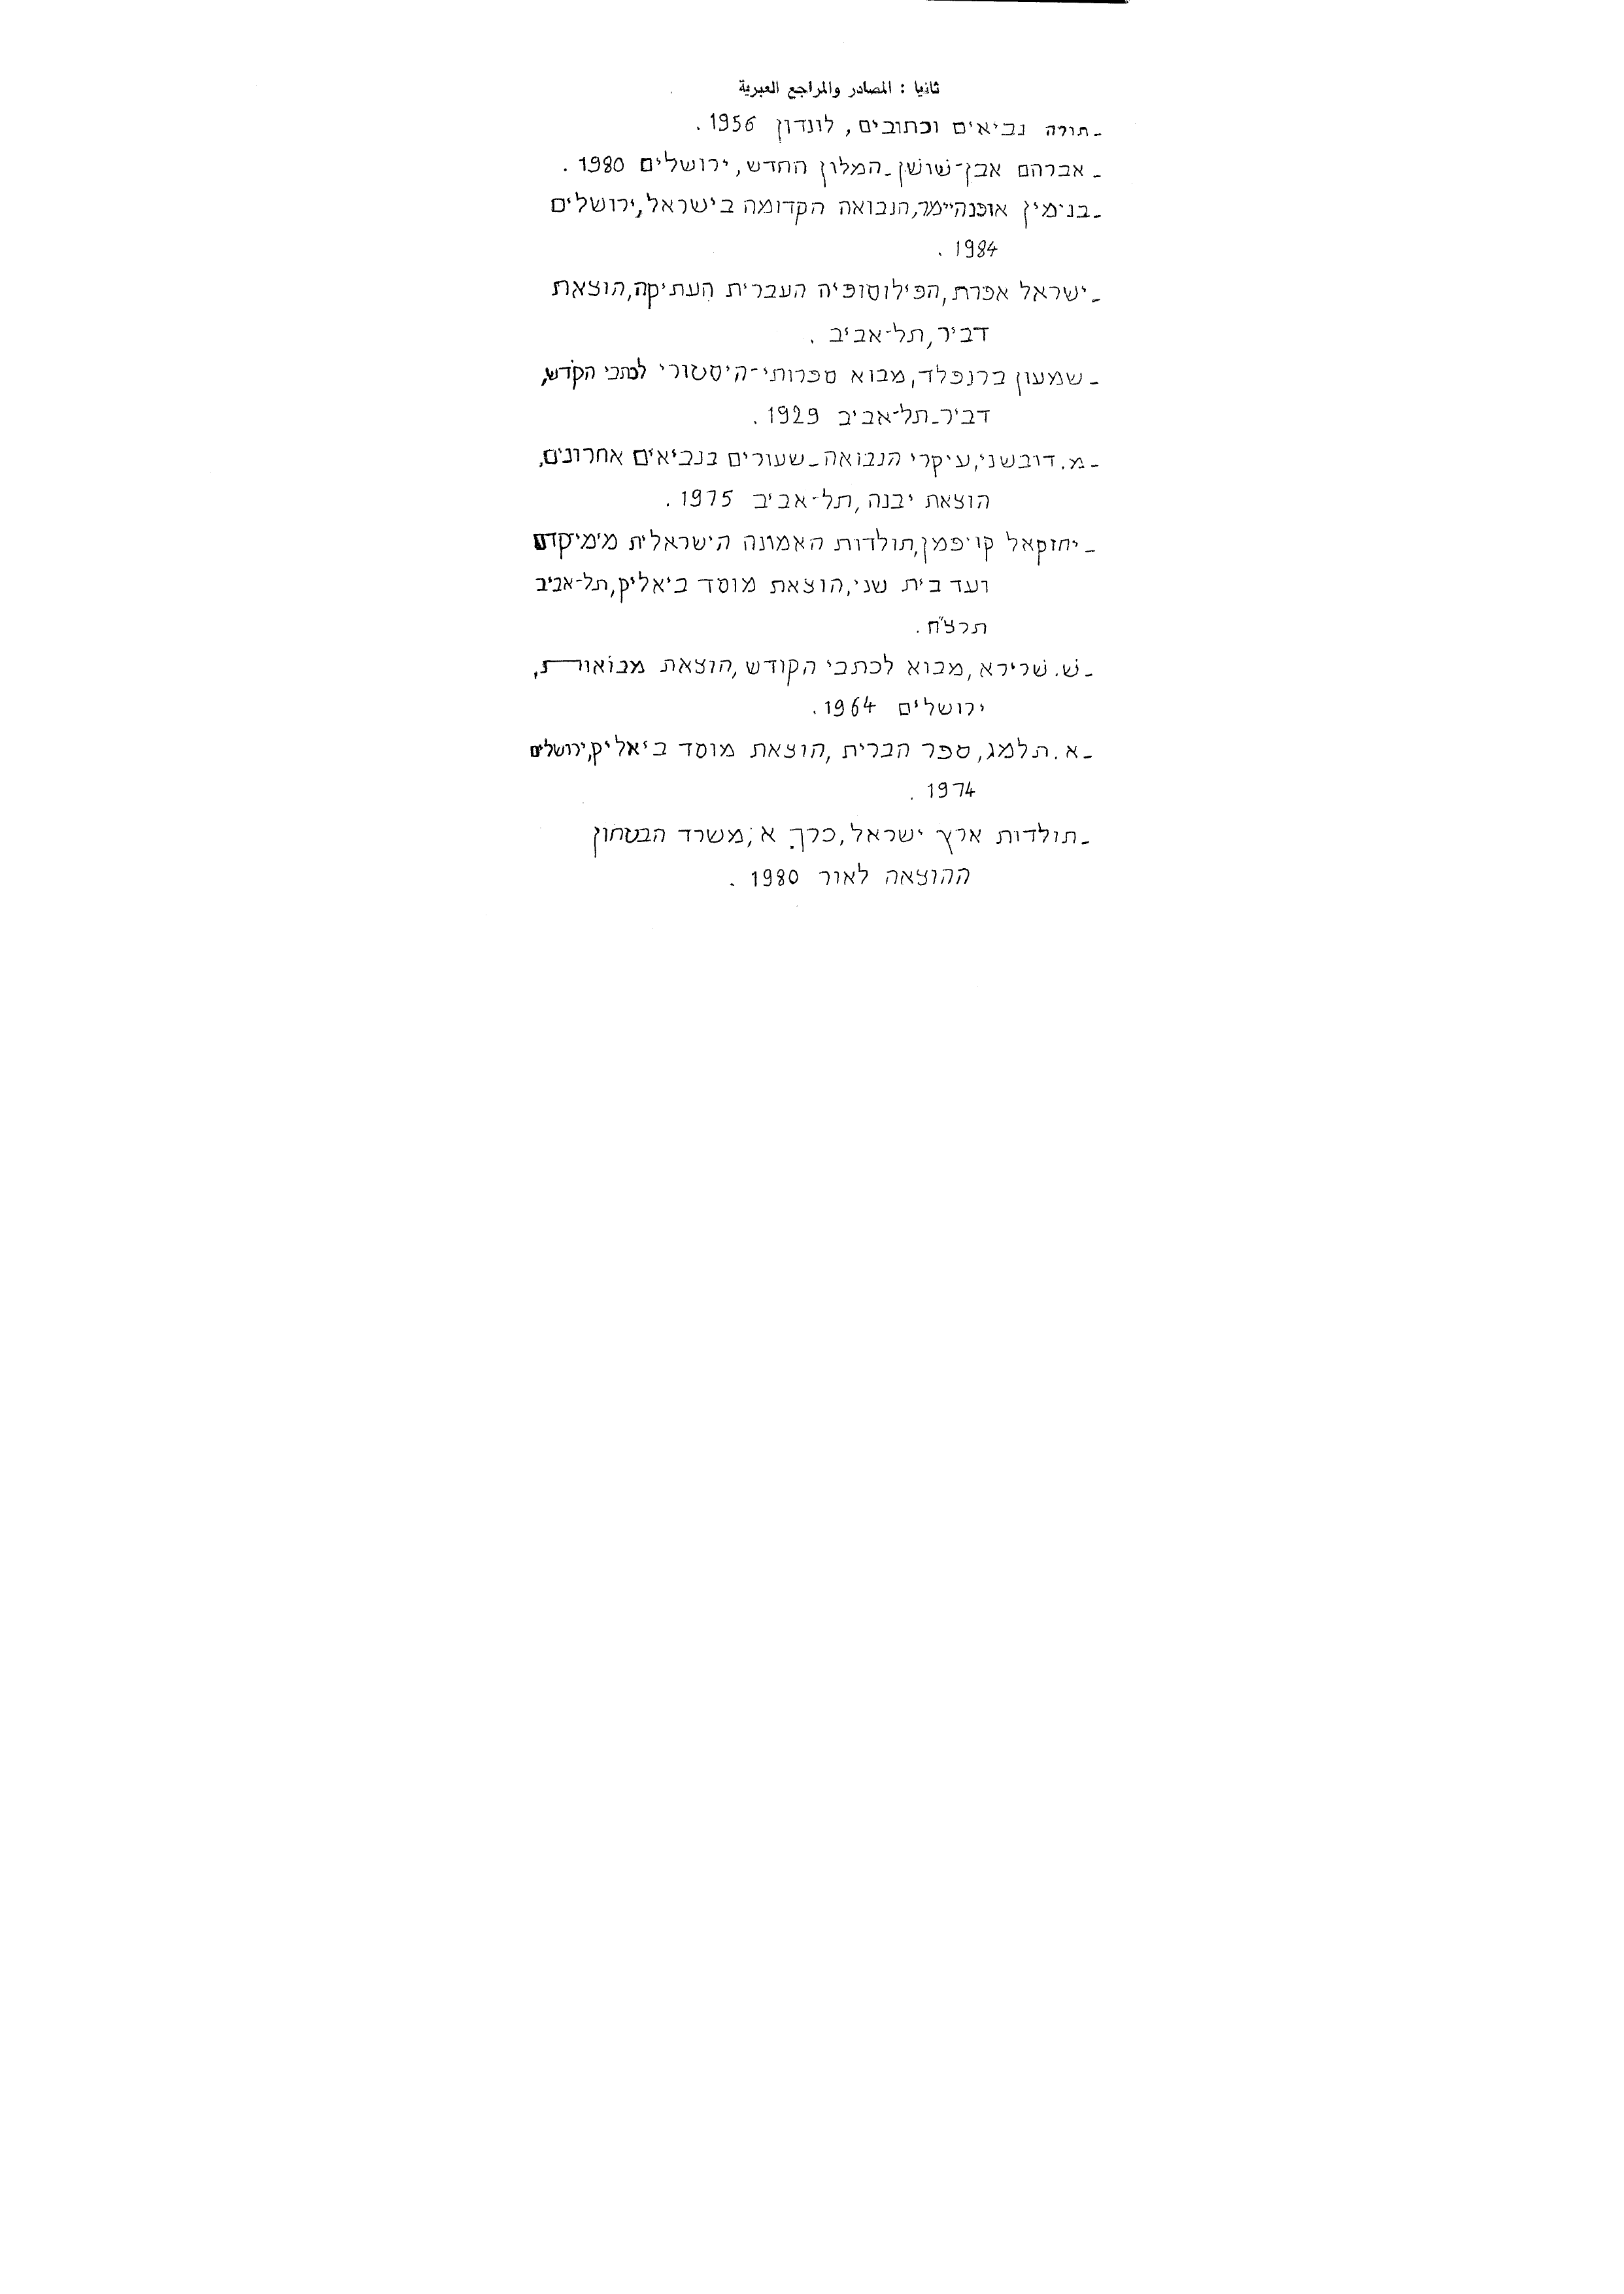 ثانيا : المصادر والمراجع العبرية
ـ תורה נביאים וכתובים, לונדון 1956.
ـ אברהם אבן-שושן ـ המלון החדש, ירושלים 1980.
ـ בנימין אופנהיימר, הנבואה הקדומה בישראל, ירושלים
1984.
ـ ישראל אפרת, הפילוסופיה העברית העתיקה, הוצאת
דביר, תל-אביב.
ـ שמעון ברנפלד, מבוא ספרותי-היסטורי לכתבי הקודש,
דביר ـ תל-אביב 1929.
ـ מ. דובשני, עיקרי הנבואה ـ שעורים בנביאים אחרונים,
הוצאת יבנה, תל-אביב 1975.
ـ יחזקאל קויפמן, תולדות האמונה הישראלית מימי קדם
ועד בית שני, הוצאת מוסד ביאליק, תל-אביב
תרצ"ח.
ـ ש. שרירא, מבוא לכתבי הקודש, הוצאת מבואות,
ירושלים 1964.
ـ א. תלמג, ספר הברית, הוצאת מוסד ביאליק, ירושלים
1974.
ـ תולדות ארץ ישראל, כרך א; משרד הבטחון
ההוצאה לאור 1980.